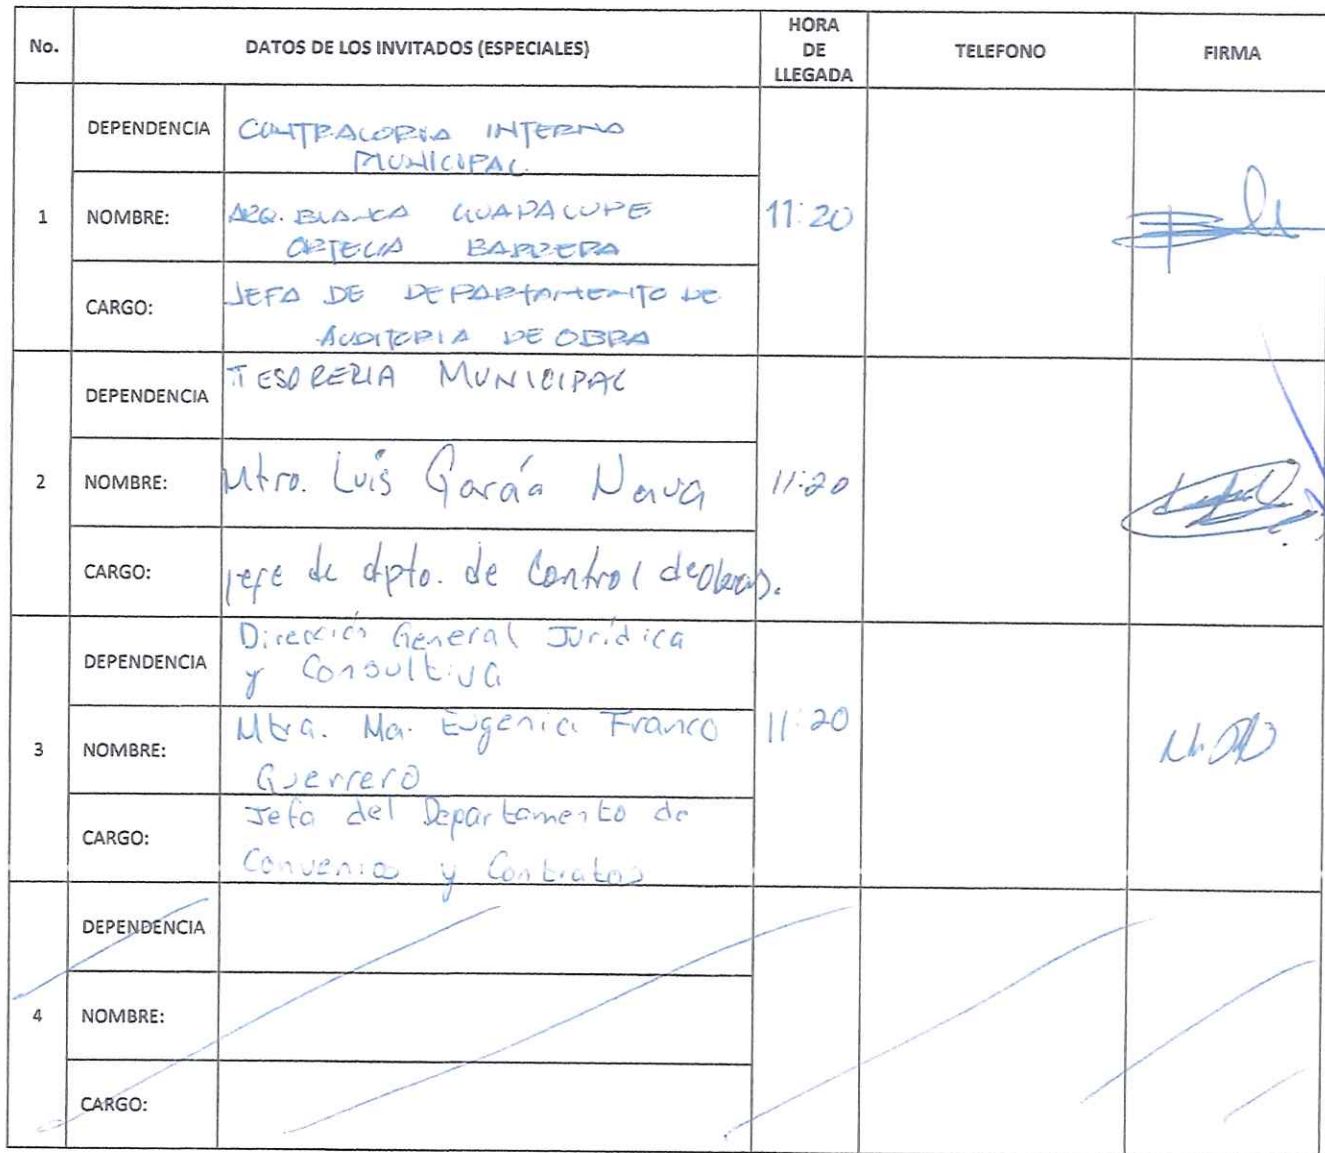 No. DATOS DE LOS INVITADOS (ESPECIALES) HORA DE LLEGADA TELEFONO FIRMA
1
DEPENDENCIA CONTRALORIA INTERNA
MUNICIPAL
NOMBRE: ARQ. BLANCA GUADALUPE
ORTEGA BARRERA
11:20
CARGO: JEFA DE DEPARTAMENTO DE
AUDITORIA DE OBRA
2
DEPENDENCIA TESORERIA MUNICIPAL
NOMBRE: Mtro. Luis García Nava
11:20
CARGO: jefe de dpto. de Control de Obras.
3
DEPENDENCIA Dirección General Jurídica
y Consultiva
NOMBRE: Mtra. Ma. Eugenia Franco
Guerrero
11:20
CARGO: Jefa del Departamento de
Convenios y Contratos
4
DEPENDENCIA
NOMBRE:
CARGO: